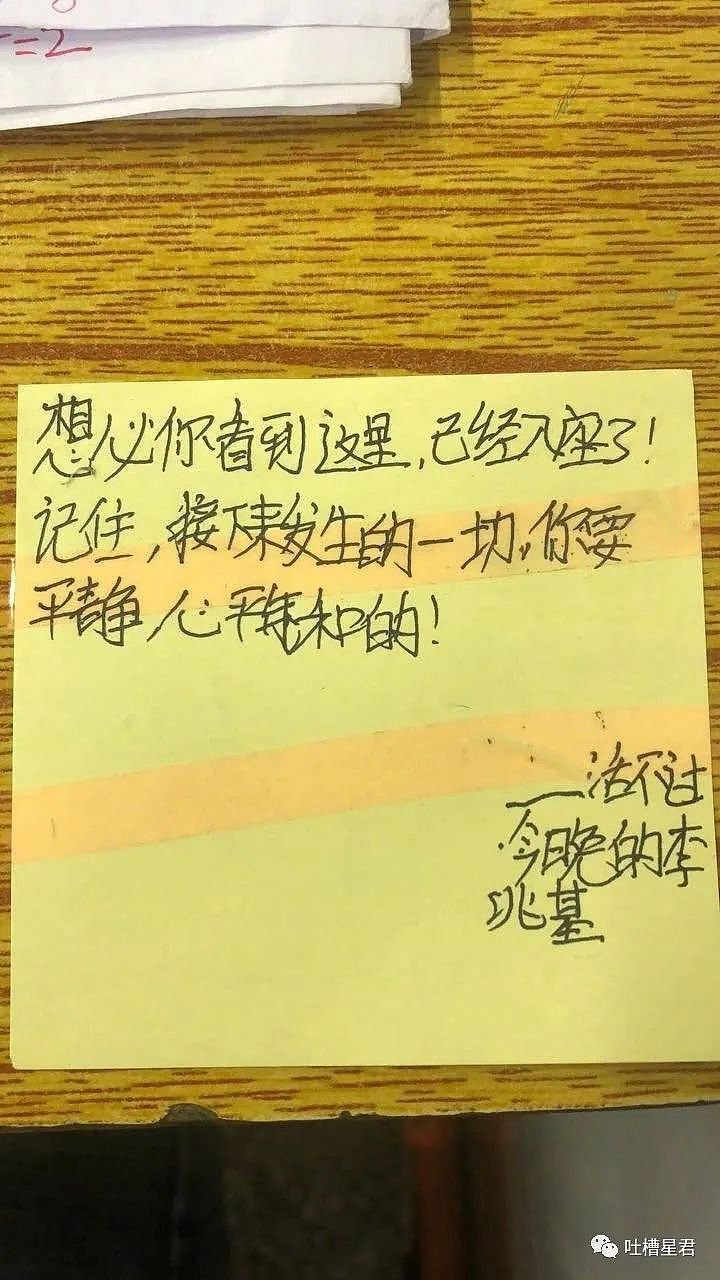 =2
想必你看到这里,已经入座了!
记住,接下来发生的一切,你要
平静,心平气和的!
——活不过
今晚的李
兆基
吐槽星君